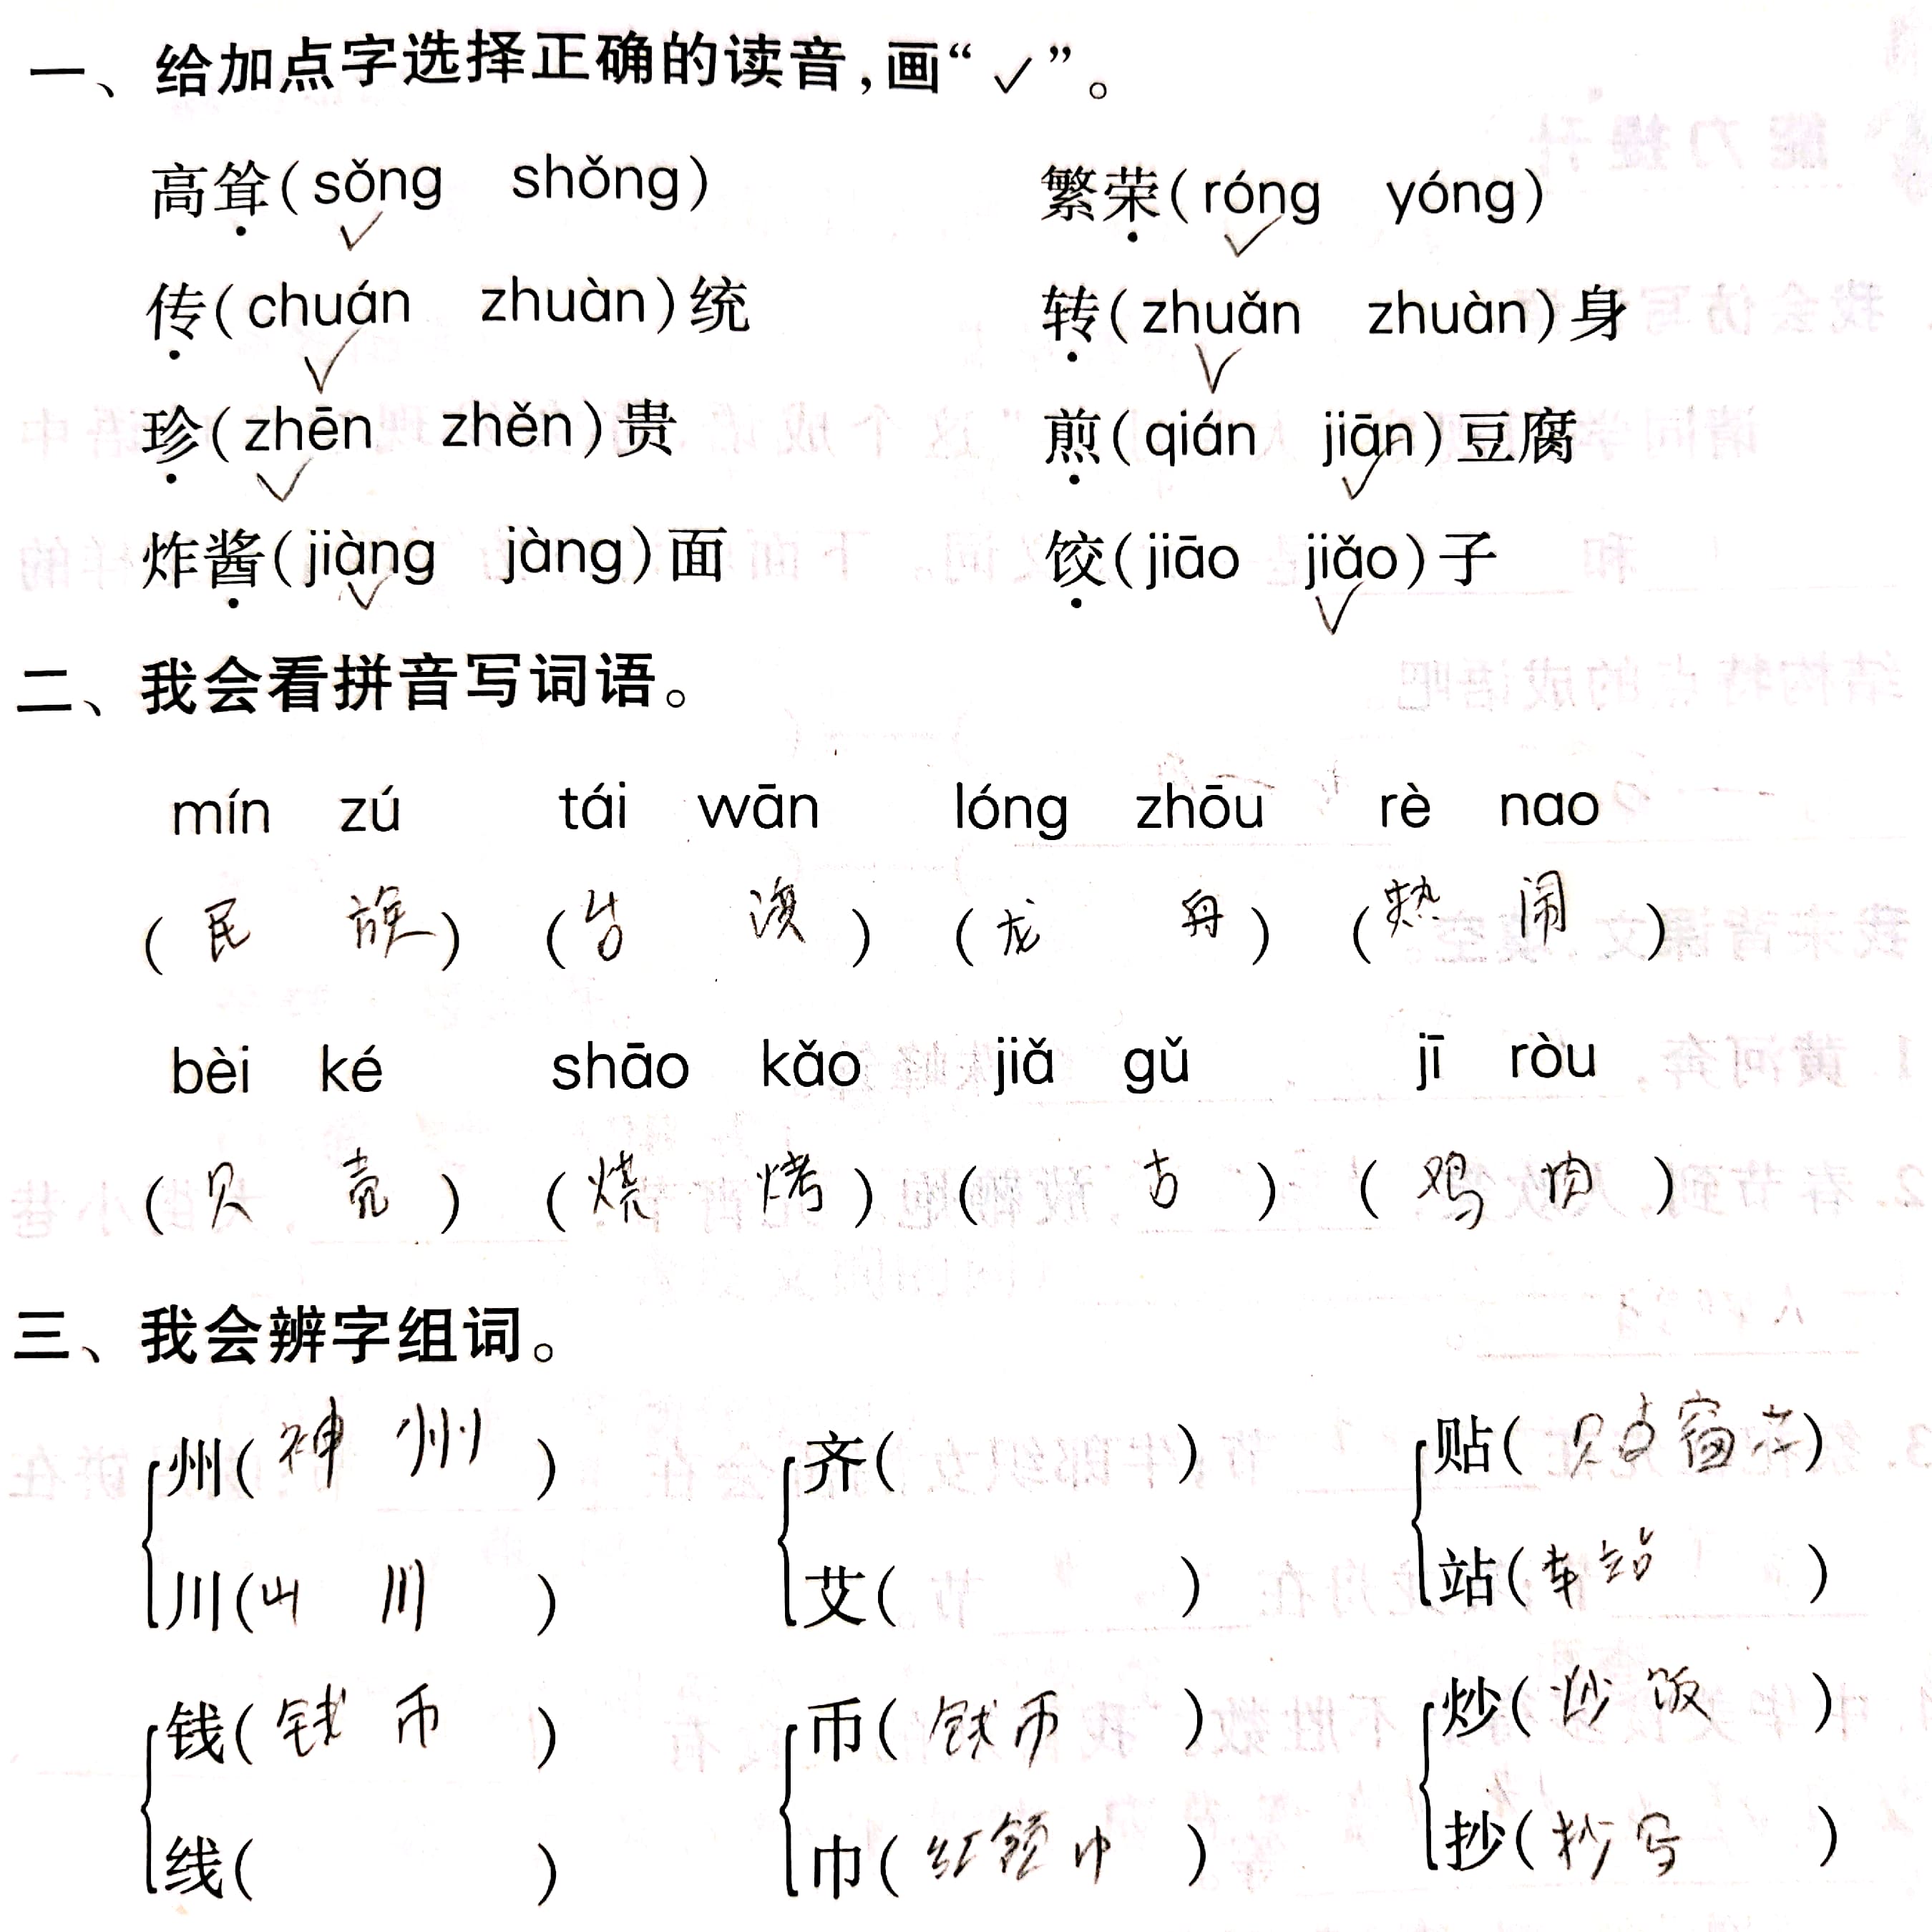 一、给加点字选择正确的读音,画“✓”。
高耸(sǒng shǒng) 繁荣(róng yóng)
传(chuán zhuàn)统 转(zhuǎn zhuàn)身
珍(zhēn zhěn)贵 煎(qián jiān)豆腐
炸酱(jiàng jàng)面 饺(jiāo jiǎo)子
二、我会看拼音写词语。
mín zú tái wān lóng zhōu rè nao
(民 族) ( ) (龙 舟) (热 闹)
bèi ké shāo kǎo jiǎ gǔ jī ròu
(贝 壳) (烧 烤) ( 古) (鸡 肉)
三、我会辨字组词。
州(神 州) 齐( ) 贴(贴窗花)
川(山 川) 艾( ) 站(车站)
钱(钱 币) 币(钱币) 炒(炒饭)
线( ) 巾(红领巾) 抄(抄写)